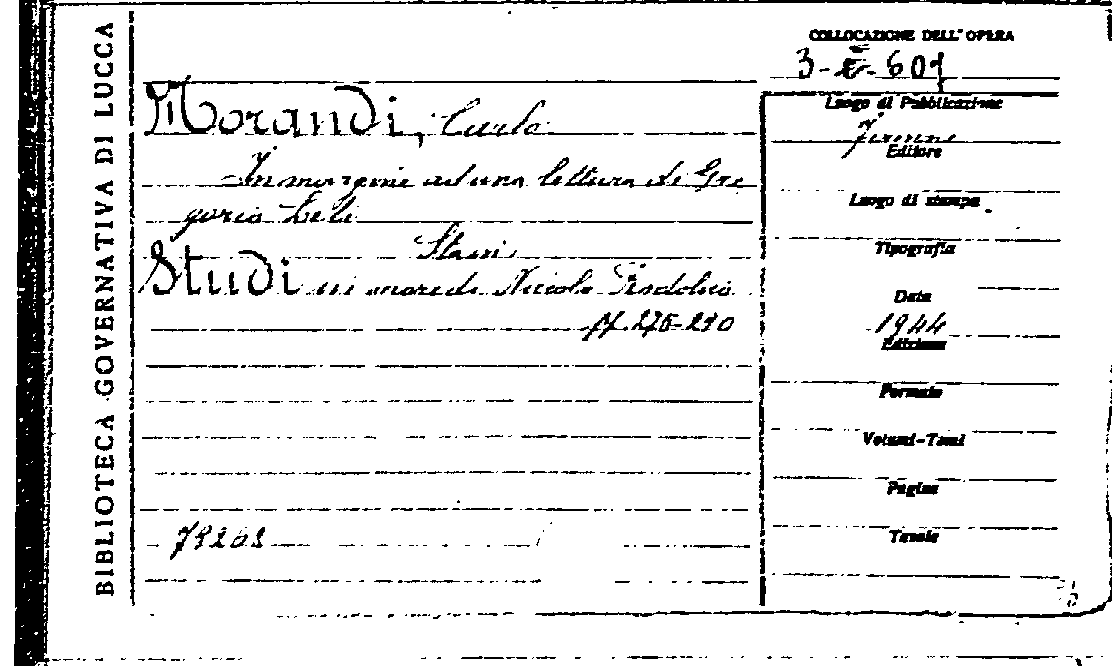 BIBLIOTECA GOVERNATIVA DI LUCCA
COLLOCAZIONE DELL' OPERA
3-E-601
Morandi, Carlo
In margine ad una lettura di Gre
gorio Leti
Stani
Studi in onore di Niccolò Rodolico
pp. 275-290
79202
Luogo di Pubblicazione
Firenze
Editore
Luogo di stampa
Tipografia
Data
1944
Edizione
Formato
Volumi-Tomi
Pagine
Tavole